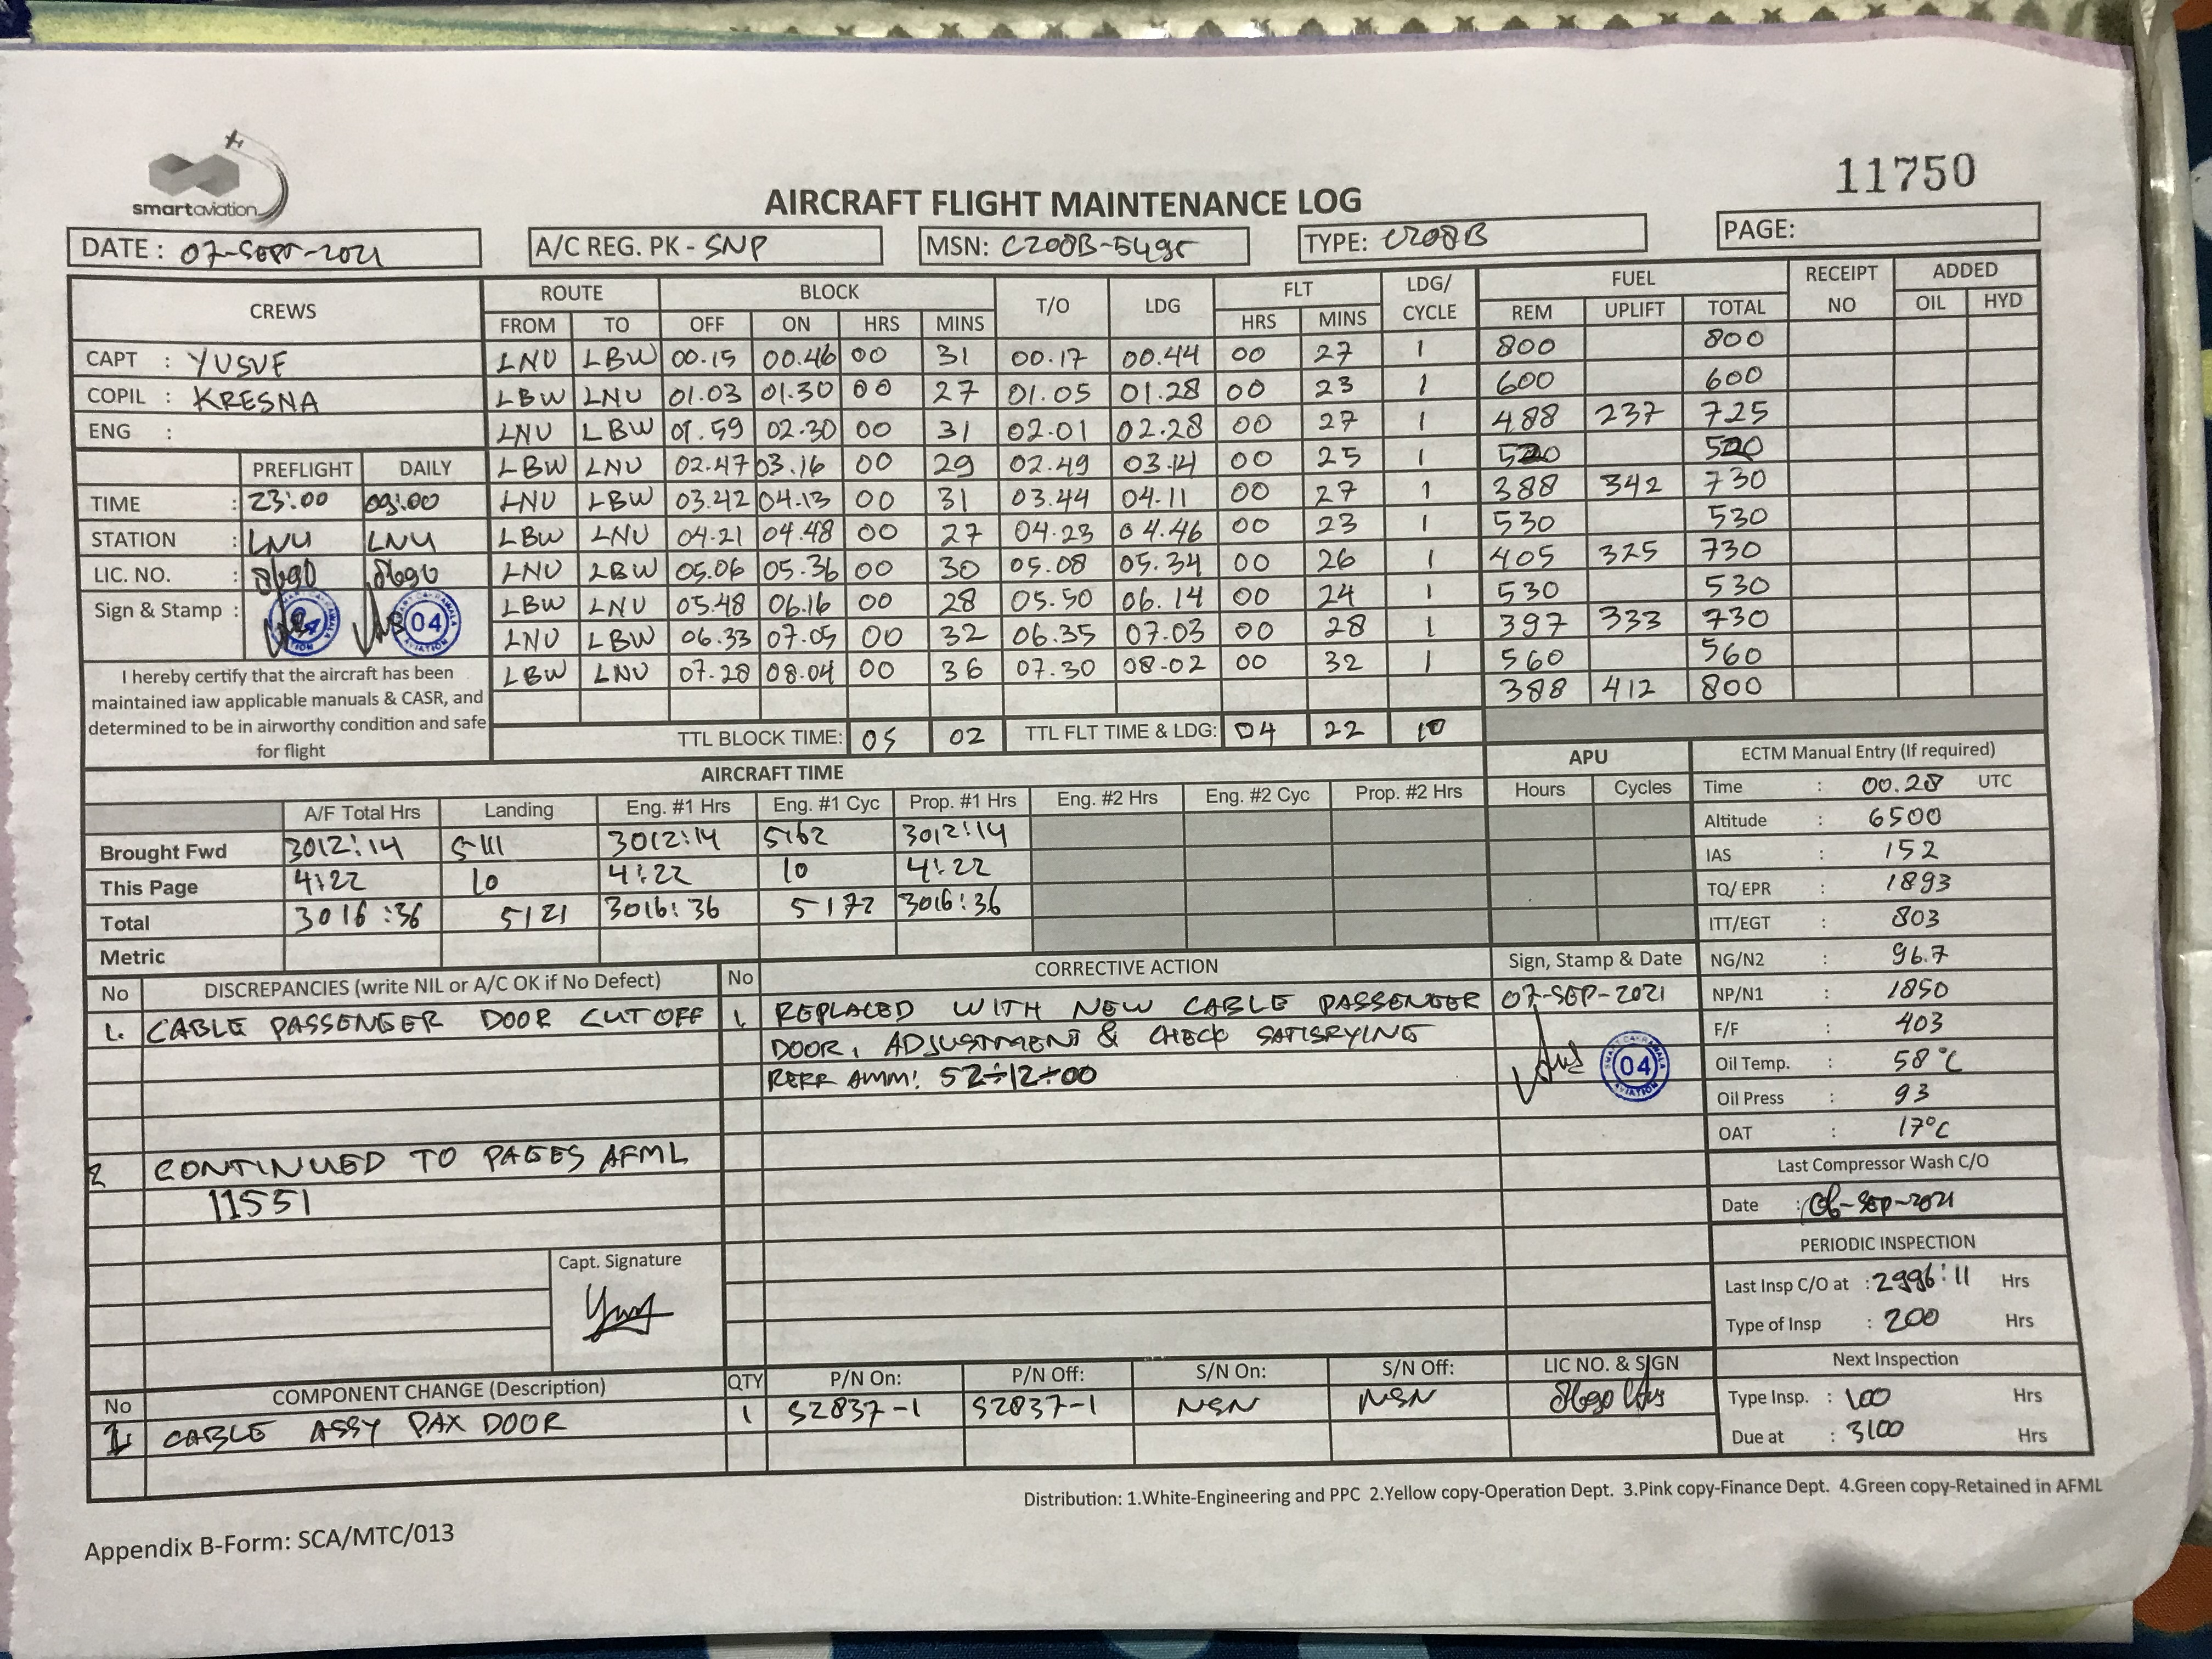 smartaviation
11750
AIRCRAFT FLIGHT MAINTENANCE LOG
DATE : 07-SEPT-2021 A/C REG. PK - SNP MSN: C208B-5495 TYPE: C208B PAGE:
CREWS ROUTE BLOCK T/O LDG FLT LDG/ CYCLE FUEL RECEIPT NO ADDED
FROM TO OFF ON HRS MINS HRS MINS REM UPLIFT TOTAL OIL HYD
CAPT : YUSUF LNU LBW 00.15 00.46 00 31 00.17 00.44 00 27 1 800 800
COPIL : KRESNA LBW LNU 01.03 01.30 00 27 01.05 01.28 00 23 1 600 600
ENG : LNU LBW 01.59 02.30 00 31 02.01 02.28 00 27 1 488 237 725
PREFLIGHT DAILY LBW LNU 02.47 03.16 00 29 02.49 03.14 00 25 1 520 520
TIME : 23:00 09:00 LNU LBW 03.42 04.13 00 31 03.44 04.11 00 27 1 388 342 730
STATION : LNU LNU LBW LNU 04.21 04.48 00 27 04.23 04.46 00 23 1 530 530
LIC. NO. : 8690 8690 LNU LBW 05.06 05.36 00 30 05.08 05.34 00 26 1 405 325 730
Sign & Stamp : 04 LBW LNU 05.48 06.16 00 28 05.50 06.14 00 24 1 530 530
LNU LBW 06.33 07.05 00 32 06.35 07.03 00 28 1 397 333 730
LBW LNU 07.28 08.04 00 36 07.30 08.02 00 32 1 560 560
388 412 800
I hereby certify that the aircraft has been
maintained iaw applicable manuals & CASR, and
determined to be in airworthy condition and safe
for flight
TTL BLOCK TIME: 05 02 TTL FLT TIME & LDG: 04 22 10
AIRCRAFT TIME APU ECTM Manual Entry (If required)
A/F Total Hrs Landing Eng. #1 Hrs Eng. #1 Cyc Prop. #1 Hrs Eng. #2 Hrs Eng. #2 Cyc Prop. #2 Hrs Hours Cycles
Brought Fwd 3012:14 5111 3012:14 5162 3012:14
This Page 4:22 10 4:22 10 4:22
Total 3016:36 5121 3016:36 5172 3016:36
Metric
Time : 00.28 UTC
Altitude : 6500
IAS : 152
TQ/ EPR : 1893
ITT/EGT : 803
NG/N2 : 96.7
NP/N1 : 1850
F/F : 403
Oil Temp. : 58°C
Oil Press : 93
OAT : 17°C
Last Compressor Wash C/O
Date : 06-SEP-2021
PERIODIC INSPECTION
Last Insp C/O at : 2996:11 Hrs
Type of Insp : 200 Hrs
Next Inspection
Type Insp. : 100 Hrs
Due at : 3100 Hrs
No DISCREPANCIES (write NIL or A/C OK if No Defect) No CORRECTIVE ACTION Sign, Stamp & Date
1. CABLE PASSENGER DOOR CUT OFF 1. REPLACED WITH NEW CABLE PASSENGER 07-SEP-2021
DOOR, ADJUSTMENT & CHECK SATISRYING
RERR AMM: 52-12-00
SMART CAKRAWALA AVIATION 04
2 CONTINUED TO PAGES AFML
11551
Capt. Signature
No COMPONENT CHANGE (Description) QTY P/N On: P/N Off: S/N On: S/N Off: LIC NO. & SIGN
1. CABLE ASSY PAX DOOR 1 S2837-1 S2837-1 NSN NSN 8690
Distribution: 1.White-Engineering and PPC 2.Yellow copy-Operation Dept. 3.Pink copy-Finance Dept. 4.Green copy-Retained in AFML
Appendix B-Form: SCA/MTC/013